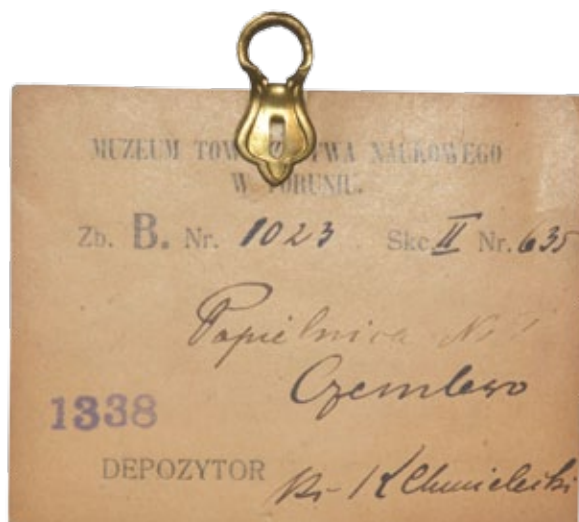 MUZEUM TOW    TWA NAUKOWEGO
W TORUNIU.
Zb. B. Nr. 1023 Skc. II Nr. 635
Popielnica No 1
Czemlewo
1338
DEPOZYTOR Ks. K Chmielecki